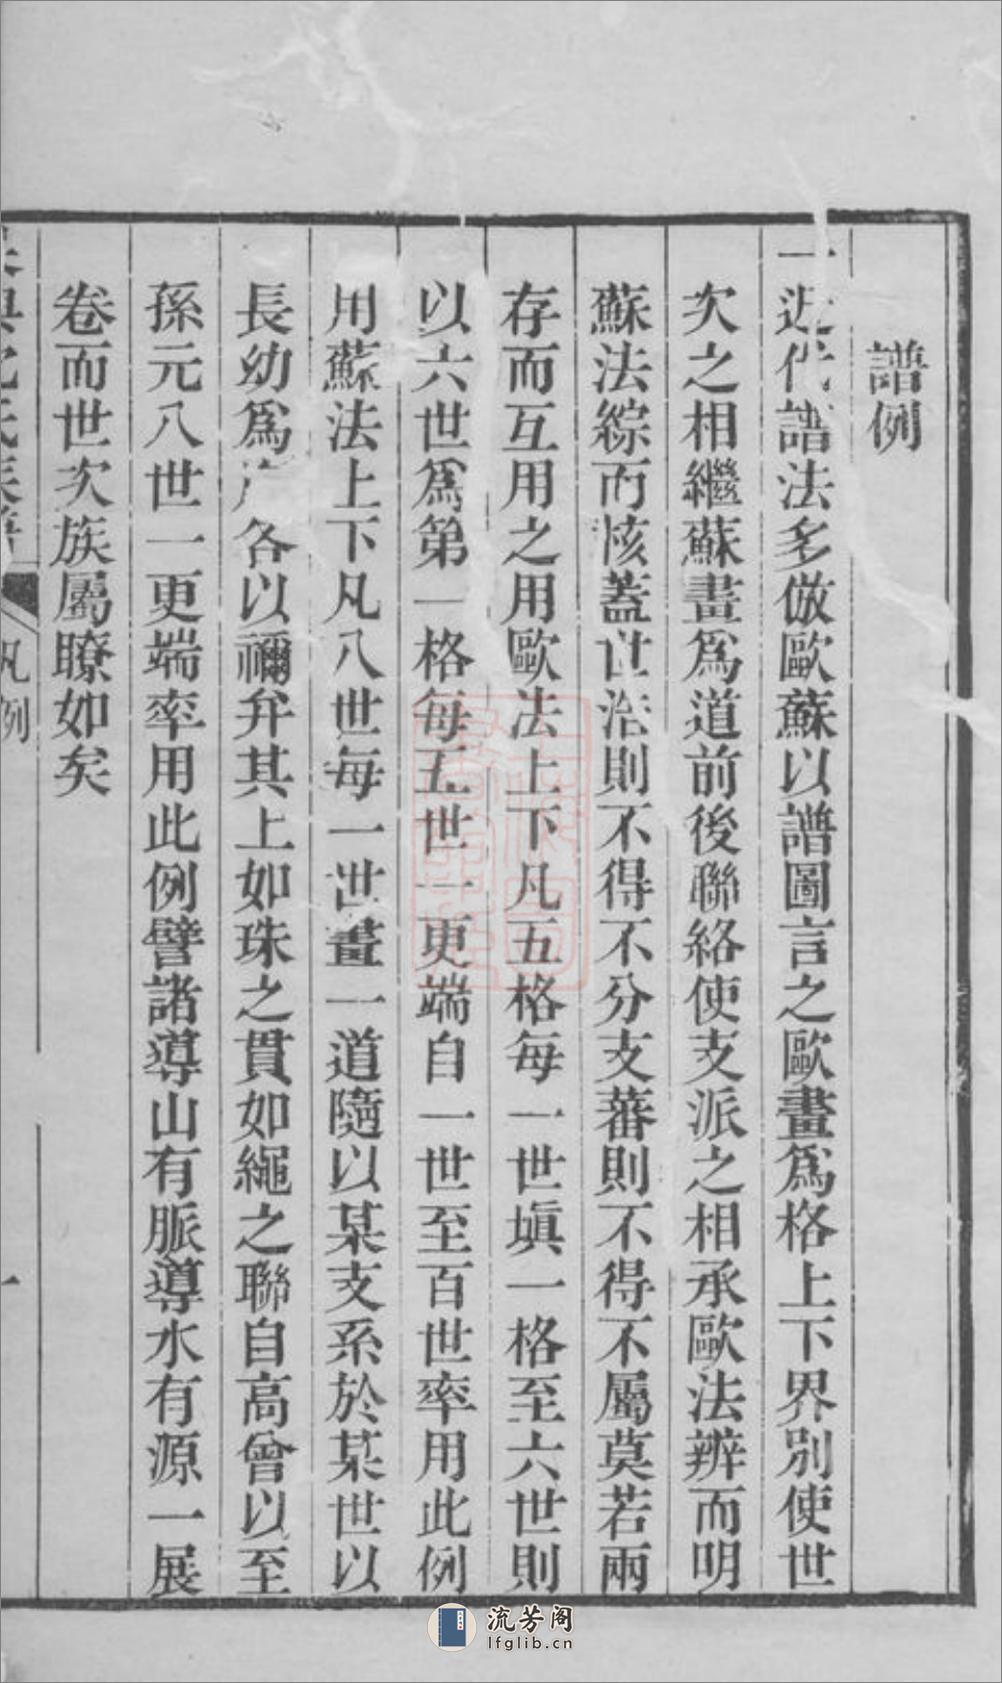 譜例
一近代譜法多倣歐蘇以譜圖言之歐畫爲格上下界別使世
次之相繼蘇畫爲道前後聯絡使支派之相承歐法辨而明
蘇法綜而核蓋世浩則不得不分支蕃則不得不屬莫若兩
存而互用之用歐法上下凡五格每一世塡一格至六世則
以六世爲第一格每五世一更端自一世至百世率用此例
用蘇法上下凡八世每一世畫一道隨以某支系於某世以
長幼爲 各以禰弁其上如珠之貫如繩之聯自高曾以至
孫元八世一更端率用此例譬諸導山有脈導水有源一展
卷而世次族屬瞭如矣
凡例
一
流芳阁
lfglib.cn